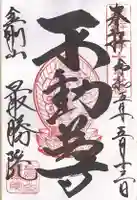 奉拝 令和三年五月十二日
不動尊
金剛山
最勝院